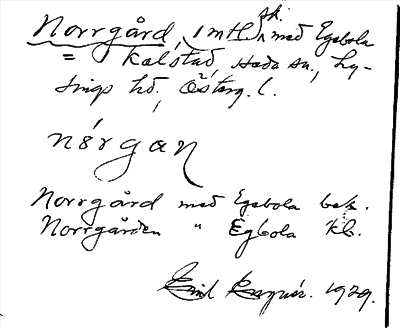 Norrgård, 1 mtl. sk. med Egebola
= Kalstad, Häda sn., Ky-
sings hd, Österg. l.
nørgaɳ
Norrgård med Egebola bek.
Norrgården " Egbola kb.
Emil 1929.